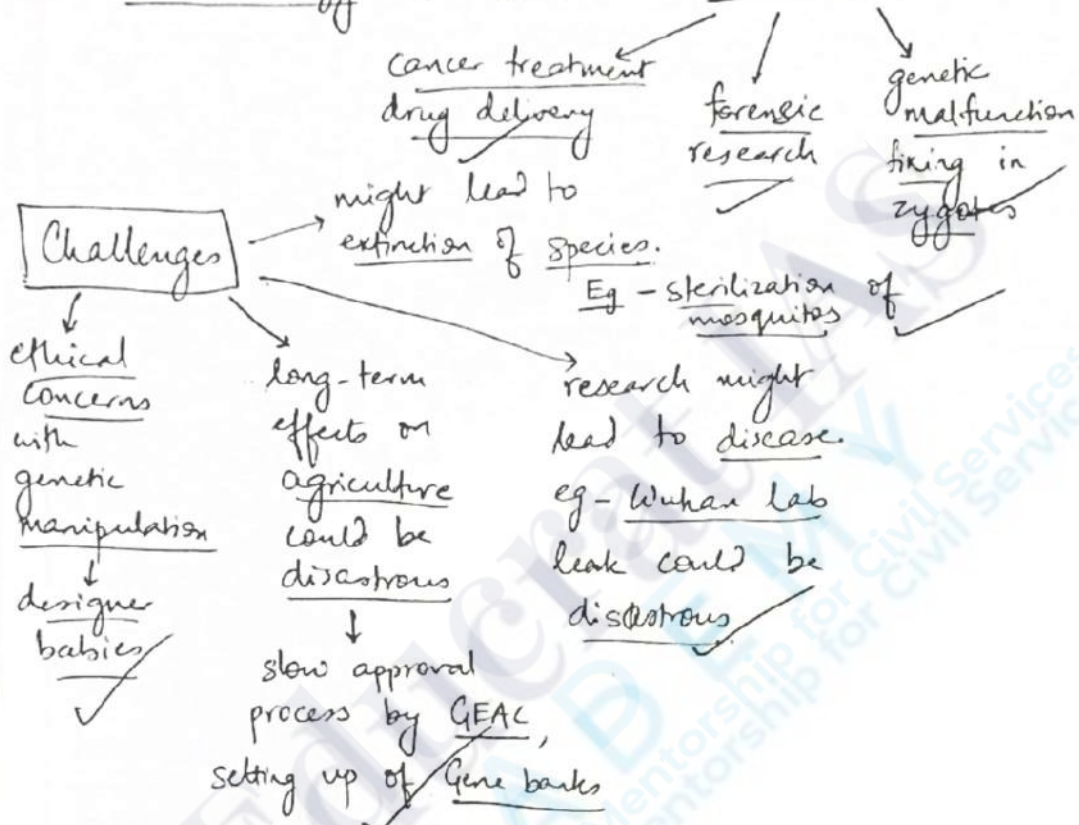 cancer treatment
drug delivery
forensic
research
genetic
malfunction
fixing in
zygotes
Challenges
might lead to
extinction of species.
Eg - sterilization of
mosquitos
ethical
concerns
with
genetic
manipulation
designer
babies
long-term
effects on
agriculture
could be
disastrous
slow approval
process by GEAC,
setting up of Gene banks
research might
lead to disease.
eg - Wuhan Lab
leak could be
disastrous
Educrat IAS
ADEMY
Mentorship for Civil Services
Mentorship for Civil Servic